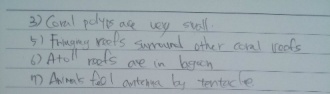 3) Coral polyps are very small.
5) Fringing roofs surround other coral roofs
6) Atoll roofs are in lagoon
7) Animals antenna by tentacle